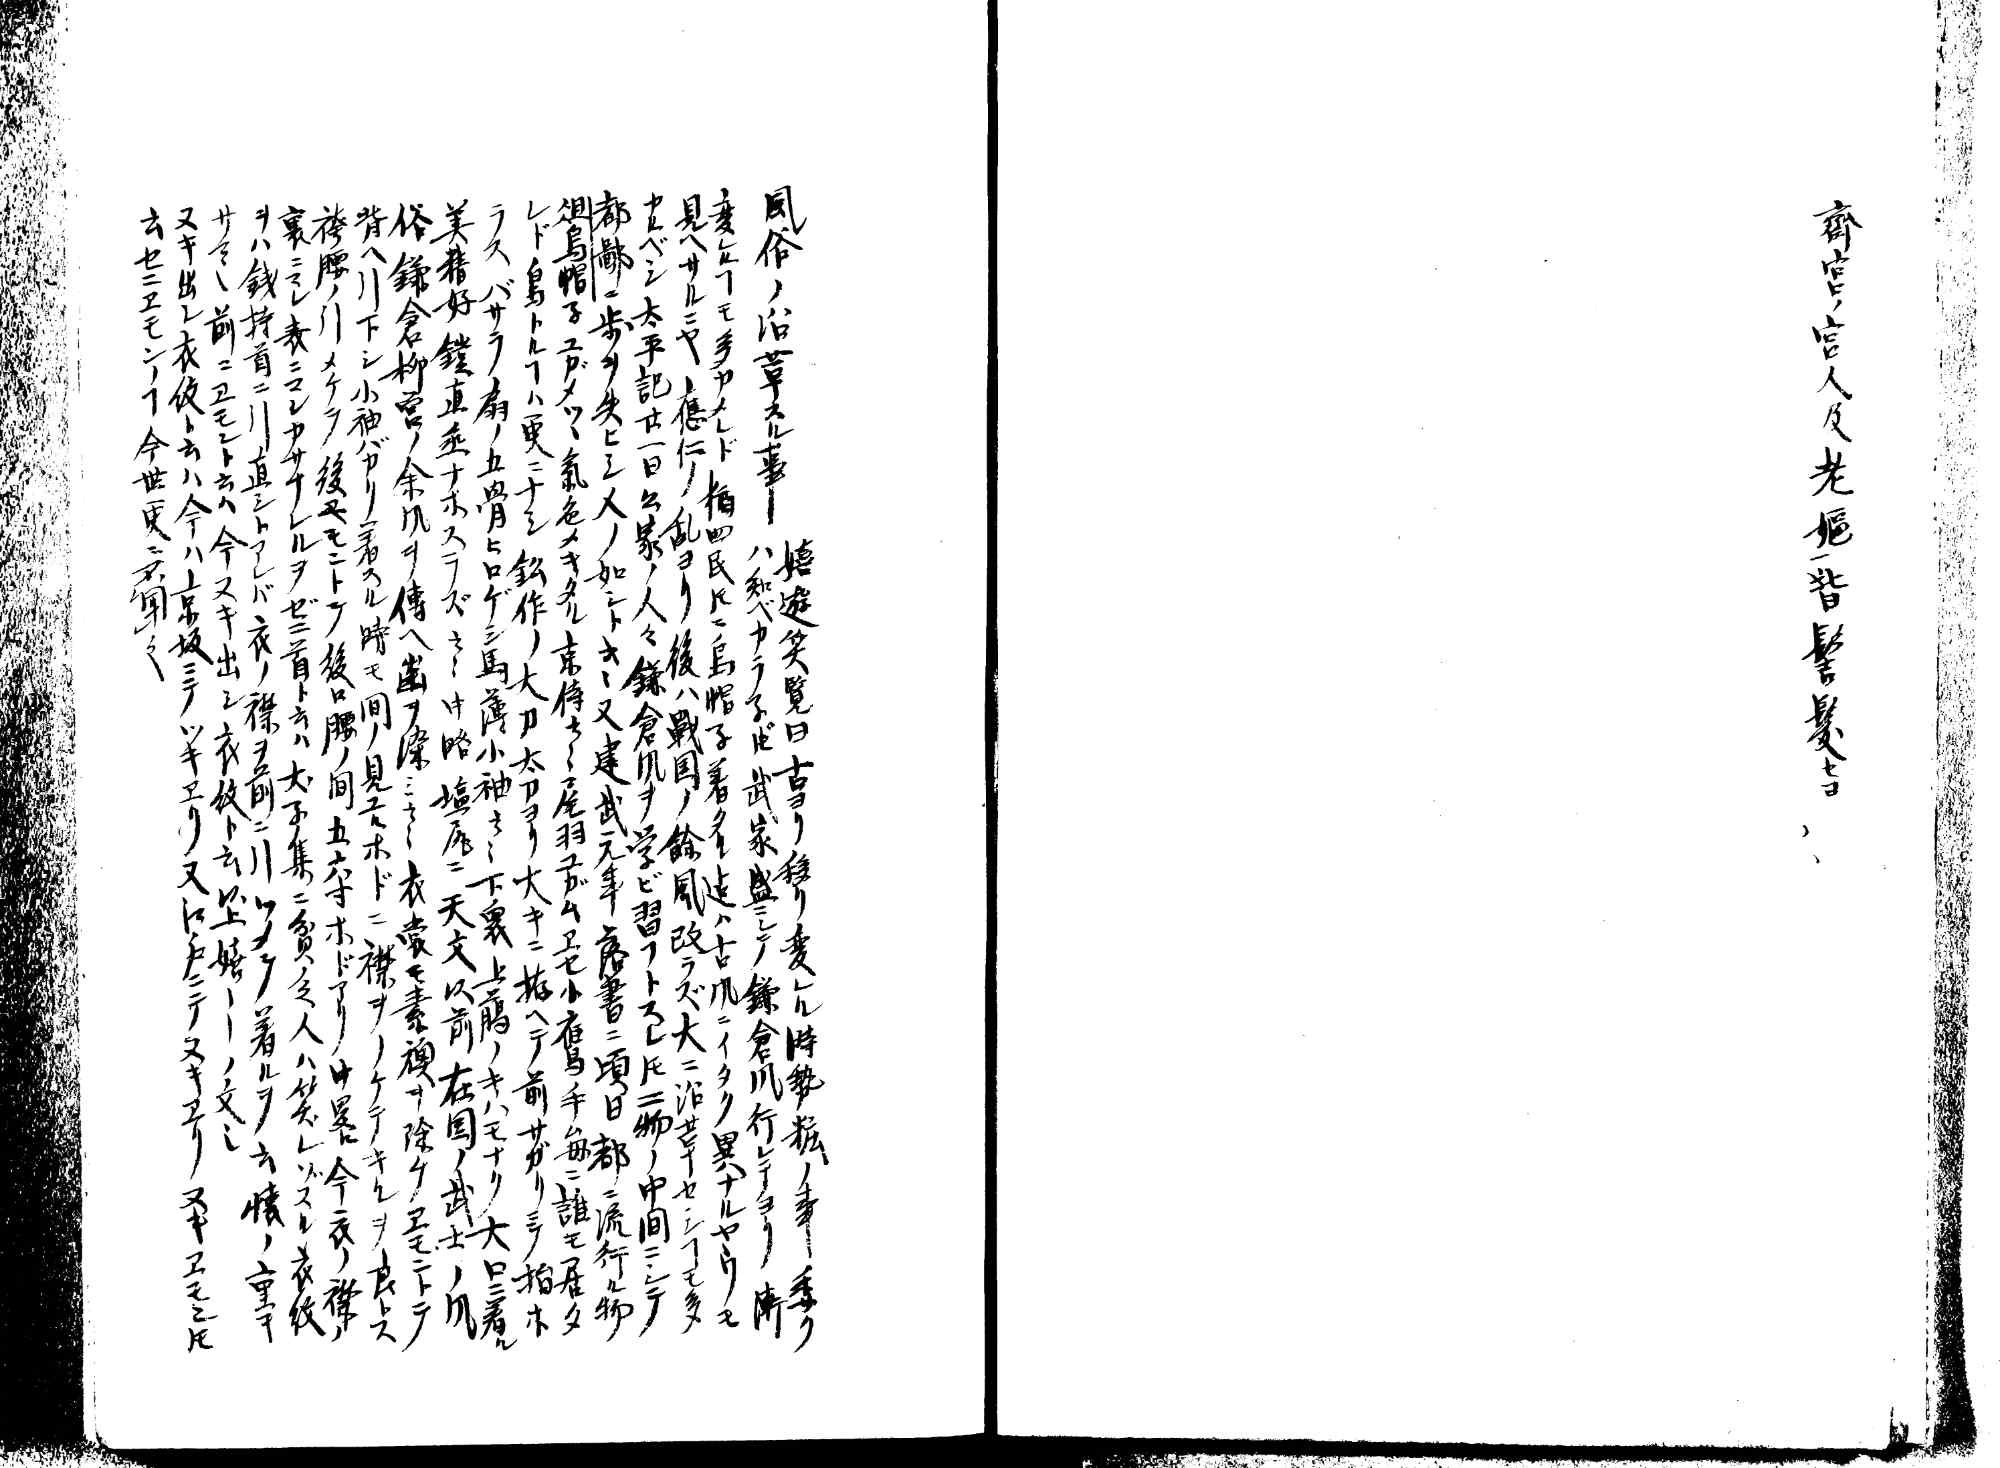 齋宮ノ宮人及老嫗皆髻髪セヨ
風俗ノ沿革スル事
嬉遊笑覧曰古ヨリ移リ変レル時勢粧ノ事委ク
ハ知ベカラネドモ武家盛ニシテ鎌倉風行レテヨリ漸
変ルヿモ多カメレド猶四民トモニ烏帽子着タル迄ハ古風ニイタク異ナルヤウモ
見ヘサルニヤ應仁ノ乱ヨリ後ハ戰国ノ餘風改ラズ大ニ沿革セシヿモ多
カルベシ太平記廿一曰公家ノ人々鎌倉風ヲ学ビ習フトスレトモ二物ノ中間ニシテ
都鄙ニ歩ヲ失ヒシ人ノ如シト云々又建武元年落書ニ頃日都ニ流行ル物
俎烏帽子ユガメツヽ氣色メキタル京侍云々尾羽ユガムエセ小鷹手毎ニ誰モ居タ
レド鳥トルヿハ更ニナシ鉛作ノ大刀太刀ヨリ大キニ拵ヘテ前サガリニゾ指ホ
ラスバサラ扇ノ五骨ヒロゲシ馬薄小袖云々下衆上臈ノキハモナク大口ニ着ル
美精好鎧直垂ナホステズ云々中略塩尻ニ天文以前在国ノ武士ノ風
俗鎌倉柳営ノ余風ヲ傳ヘ歯ヲ染ニ云々衣裳モ素襖ヲ除ケヱモントテ
背ヘ引下シ小袖バカリ着スル時モ間ノ見ユルホドニ襟ヲノケテキルヲ良トス
袴腰ノ引メケラ後ヱモントテ後口腰ノ間五六寸ホドアリ中畧今衣ノ襟ノ
裏ニシ表ニシカサナレルヲゼニ首ト云ハ犬子集ニ貧乏人ハ笑レゾスル衣紋
ヲハ銭持首ニ引直シトアレバ衣ノ襟ヲ前ニ引ツメテ着ルヲ云懐ノ重キ
サマ也前ニヱモント云ハ今ヌキ出シ衣紋ト云以上嬉ーーノ文也
ヌキ出シ衣紋ト云ハ今ハ京坂ニテツキヱリ又江戸ニテヌキヱリノヌキヱモントモ
云セニヱモンノヿ今世更ニ不聞之